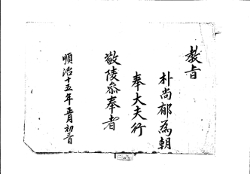 教旨
朴尚郁為朝
奉大夫行
敬陵參奉者
順治十五年五月初一日